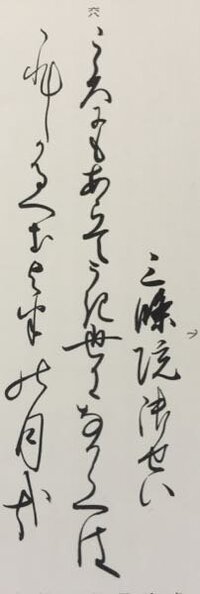 六八
三條院御せい
こゝろにもあらてうき世になからへは
こひしかるへき夜半の月哉